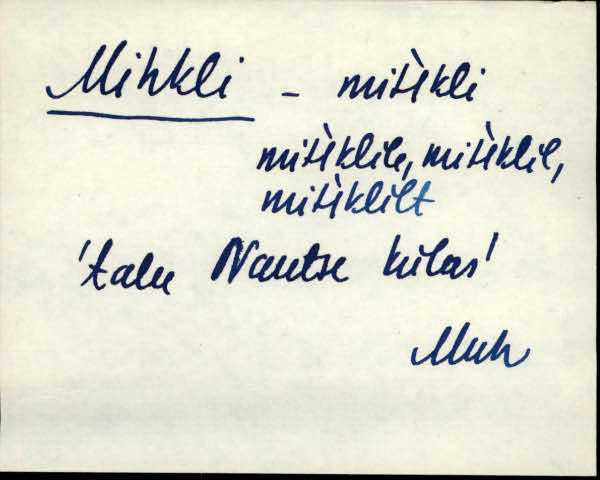 Mihkli - mih̀kli
mih̀klile, mih̀klil,
mih̀klilt
'talu Nautse külas'
Muh